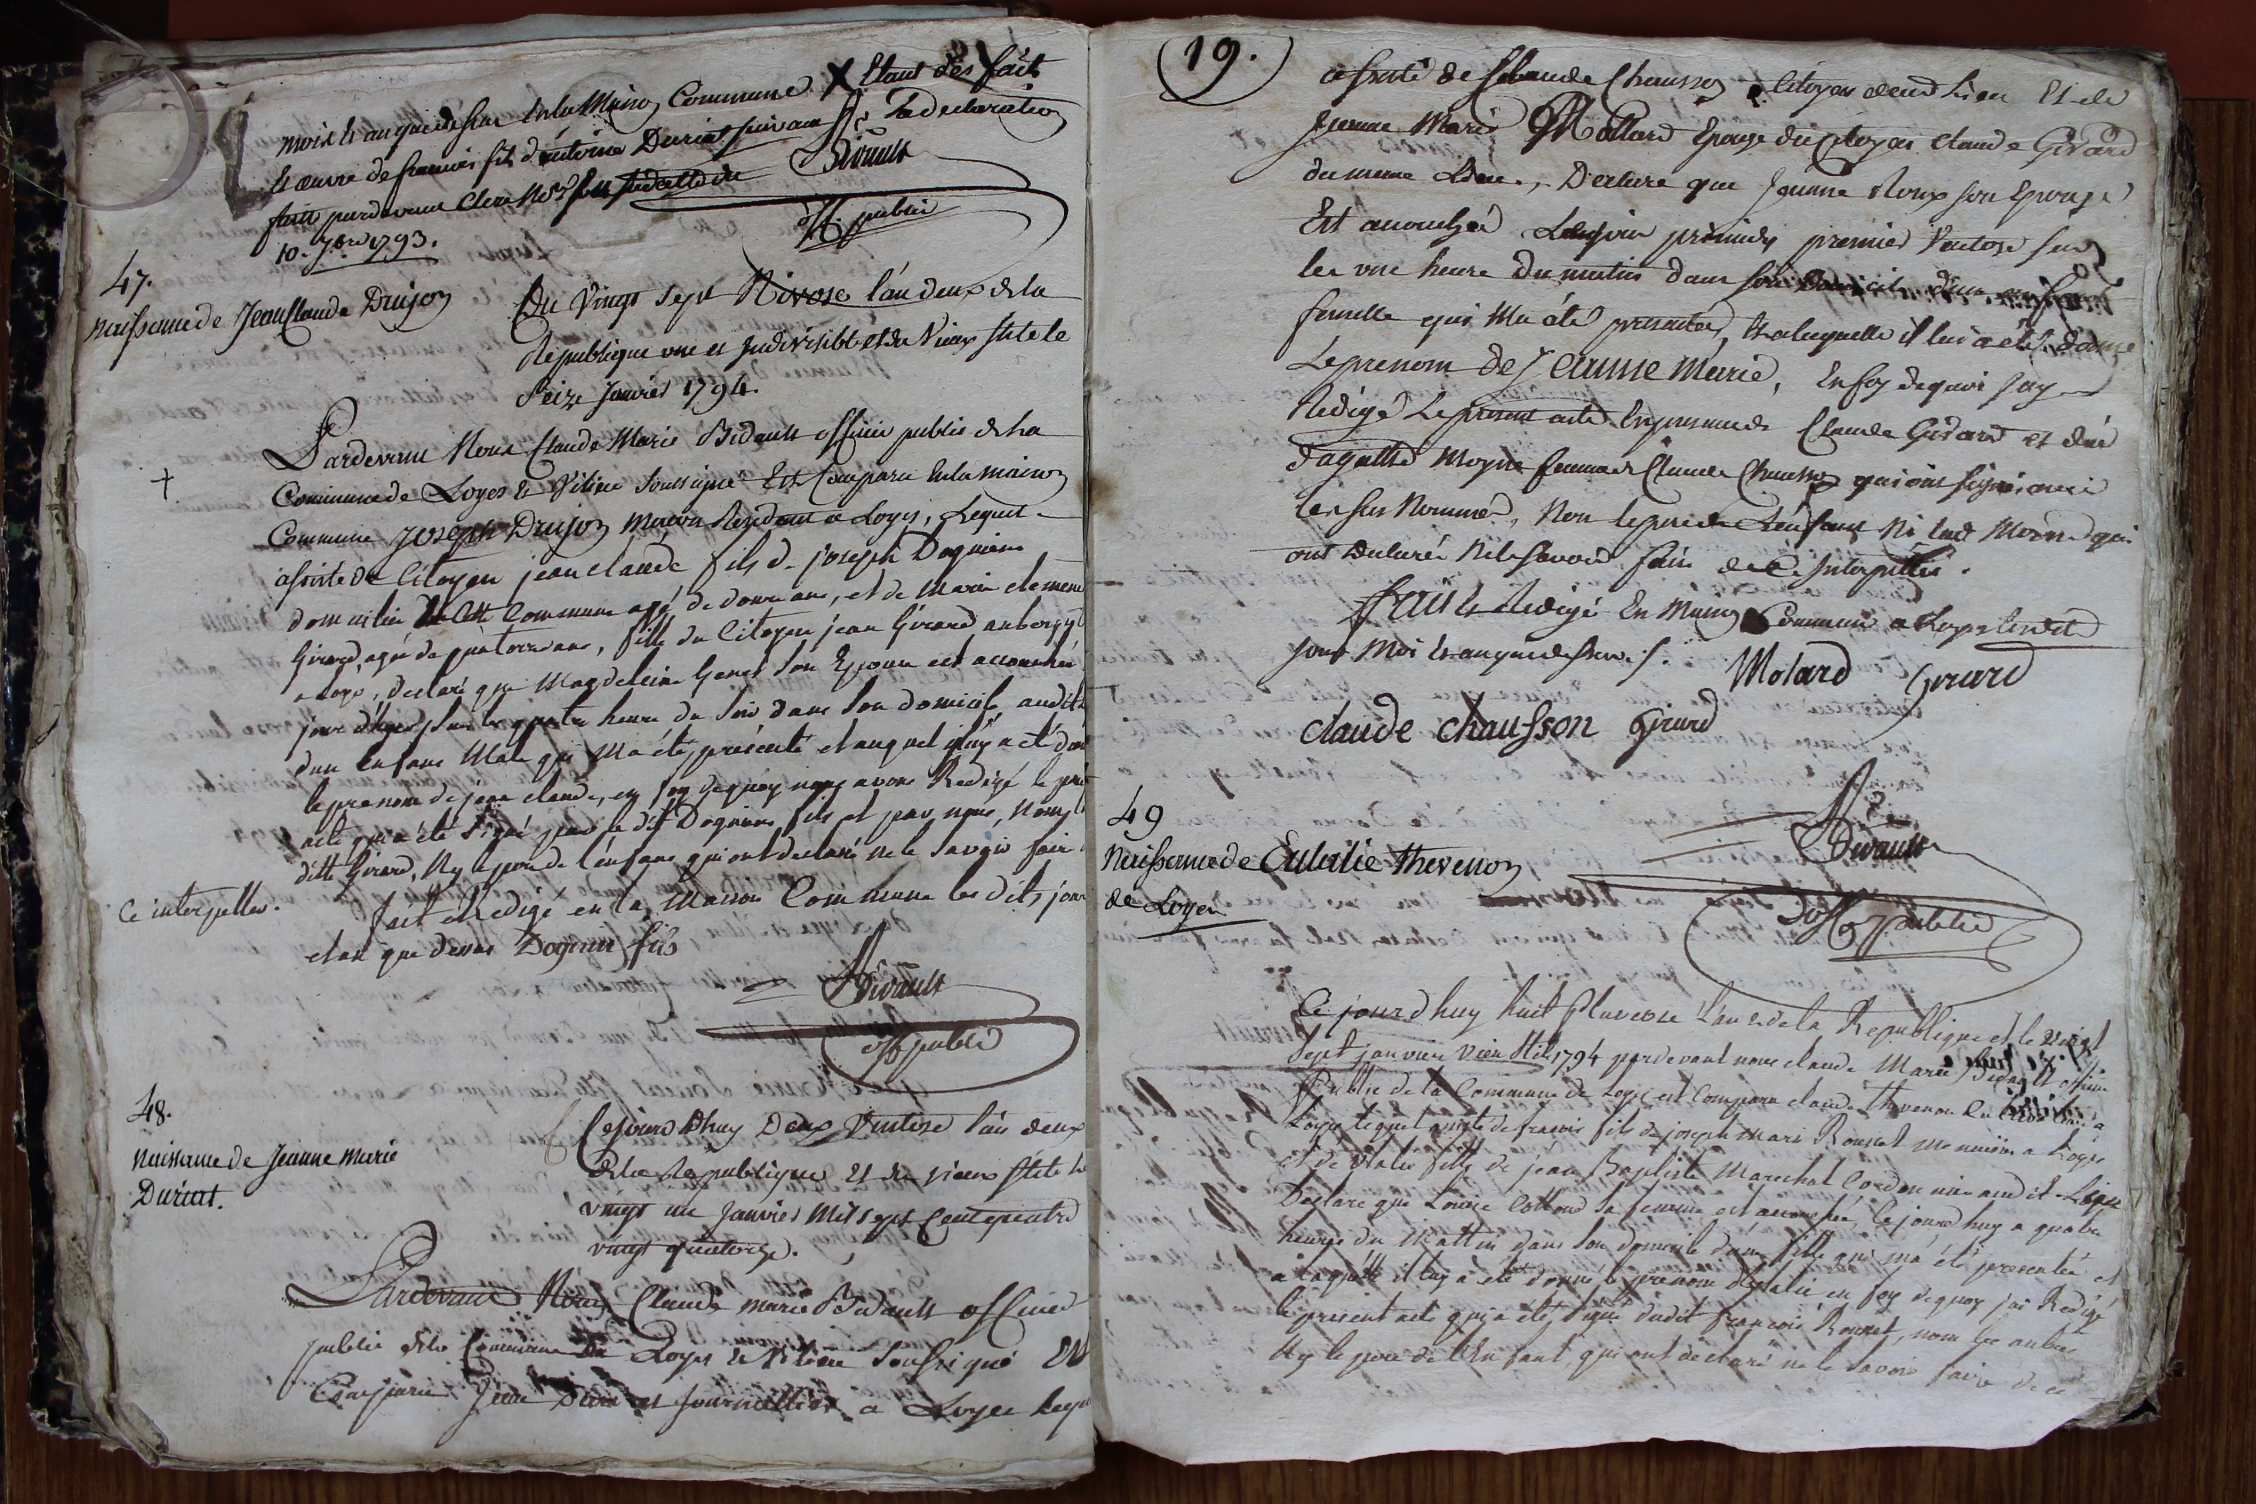 mois et an que dessus en la Maison Commune X Etant dès fait
Et œuvre de francois fils d'antoine Duriat suivant la declaration
faitte pardevant Clerc No.re
10. 7bre 1793.
Bidault
off. public
47.
Naissance de Jean Claude Drujon
Du Vingt Sept Nivose l'an deux de la
Republique une et Indivisible et du Vieux stile le
Seize Janvier 1794.
Pardevant Nous Claude Marie Bidault officier public de la
Commune de Loyes & Vilieu soussigné Est Comparu en la maison
Commune Joseph Drujon Maçon Residant a Loyes, Lequel
assisté du Citoyen jean claude fils de joseph Dagnieu
domicilié de cette Commune agé de douze ans, et de Marie clemence
Girard, agée de quatorze ans, fille du Citoyen jean Girard aubergiste
a Loye, declaré que Magdeleine Genet son Epouse est accouchée
jour d'hyer sur les quatre heure du soir dans son domicile audit
d'un enfans Male qui m'a été présenté et auquel il luy a été don
le prenom de jean claude, en foy de quoy nous avons Redigé le pre
acte qui a été signé par le dit Dagnieu fils et par nous, Non la
ditte Girard, Ny le pere de l'enfans qui ont declaré ne le savoir faire
Ce interpellés.
fait et redigé en la Maison Commune les dits jour
et an que dessus Dagnieu fils
Bidault
off public
48.
Naissance de Jeanne Marie
Duriat.
Cejourd'huy Deux Ventose l'an deux
de la Republique et du vieux stile le
vingt un Janvier Mil sept Cent quatre
vingt quatorze.
Pardevant Nous Claude marie Bidault officier
public de la Commune de Loyes & Vilieu soussigné Est
Comparu Jean Duriat Journallier a Loyes lequel
19.
assisté de Claude Chausson Citoyen dud. Lieu et de
Jeanne Marie Mollard Epouse du Citoyen Claude Girard
du meme Lieu, Declare que Jeanne Roux son Epouse
Est accouchée primidy premier Ventose sur
les une heure du matin dans son Domicile d'un enfant
femelle qui m'a été presentée, et a laquelle il lui a été donné
Le prenom de Jeanne Marie, En foy de quoi j'ay
Redigé Le present acte En presence de Claude Girard et de
d'agathe Moyne femme de Claude Chausson qui ont signé avec
les sus Nommés, Non le pere de L'enfant Ni lad. Moyne qui
ont Declaré Ne le savoir faire de ce Interpellés.
fait & Redigé En Maison Commune a Loyes lesdits
jour Mois et an que dessus.
Molard Girard
claude chausson Girard
Bidault
off public
49
Naissance de Eulalie thevenon
de Loyes
Ce jourd'huy huit Pluviose l'an 2. de la Republique et le vingt
Sept janvier vieux stil 1794 pardevant nous claude Marie Bidault officier
Public de la Commune de Loyes est comparu claude thevenon
Loyes lequel assisté de francois fils de joseph Marie Ronnet meunier a Loyes
et de Ulalie fille de jean Baptiste Marechal Cordonnier audit Loyes
Declare que Louise Cottond sa femme est accouchée, Ce jourd'huy a quatre
heures du Mattin dans son domicile d'une fille qui m'a été presentée et
a laquelle il luy a été donné le prenom d'Ulalie en foy de quoy j'ai Redigé
le present acte qui a été signé dudit francois Ronnet, non les autres
Ny le pere de l'Enfant qui ont declaré ne le savoir faire de ce